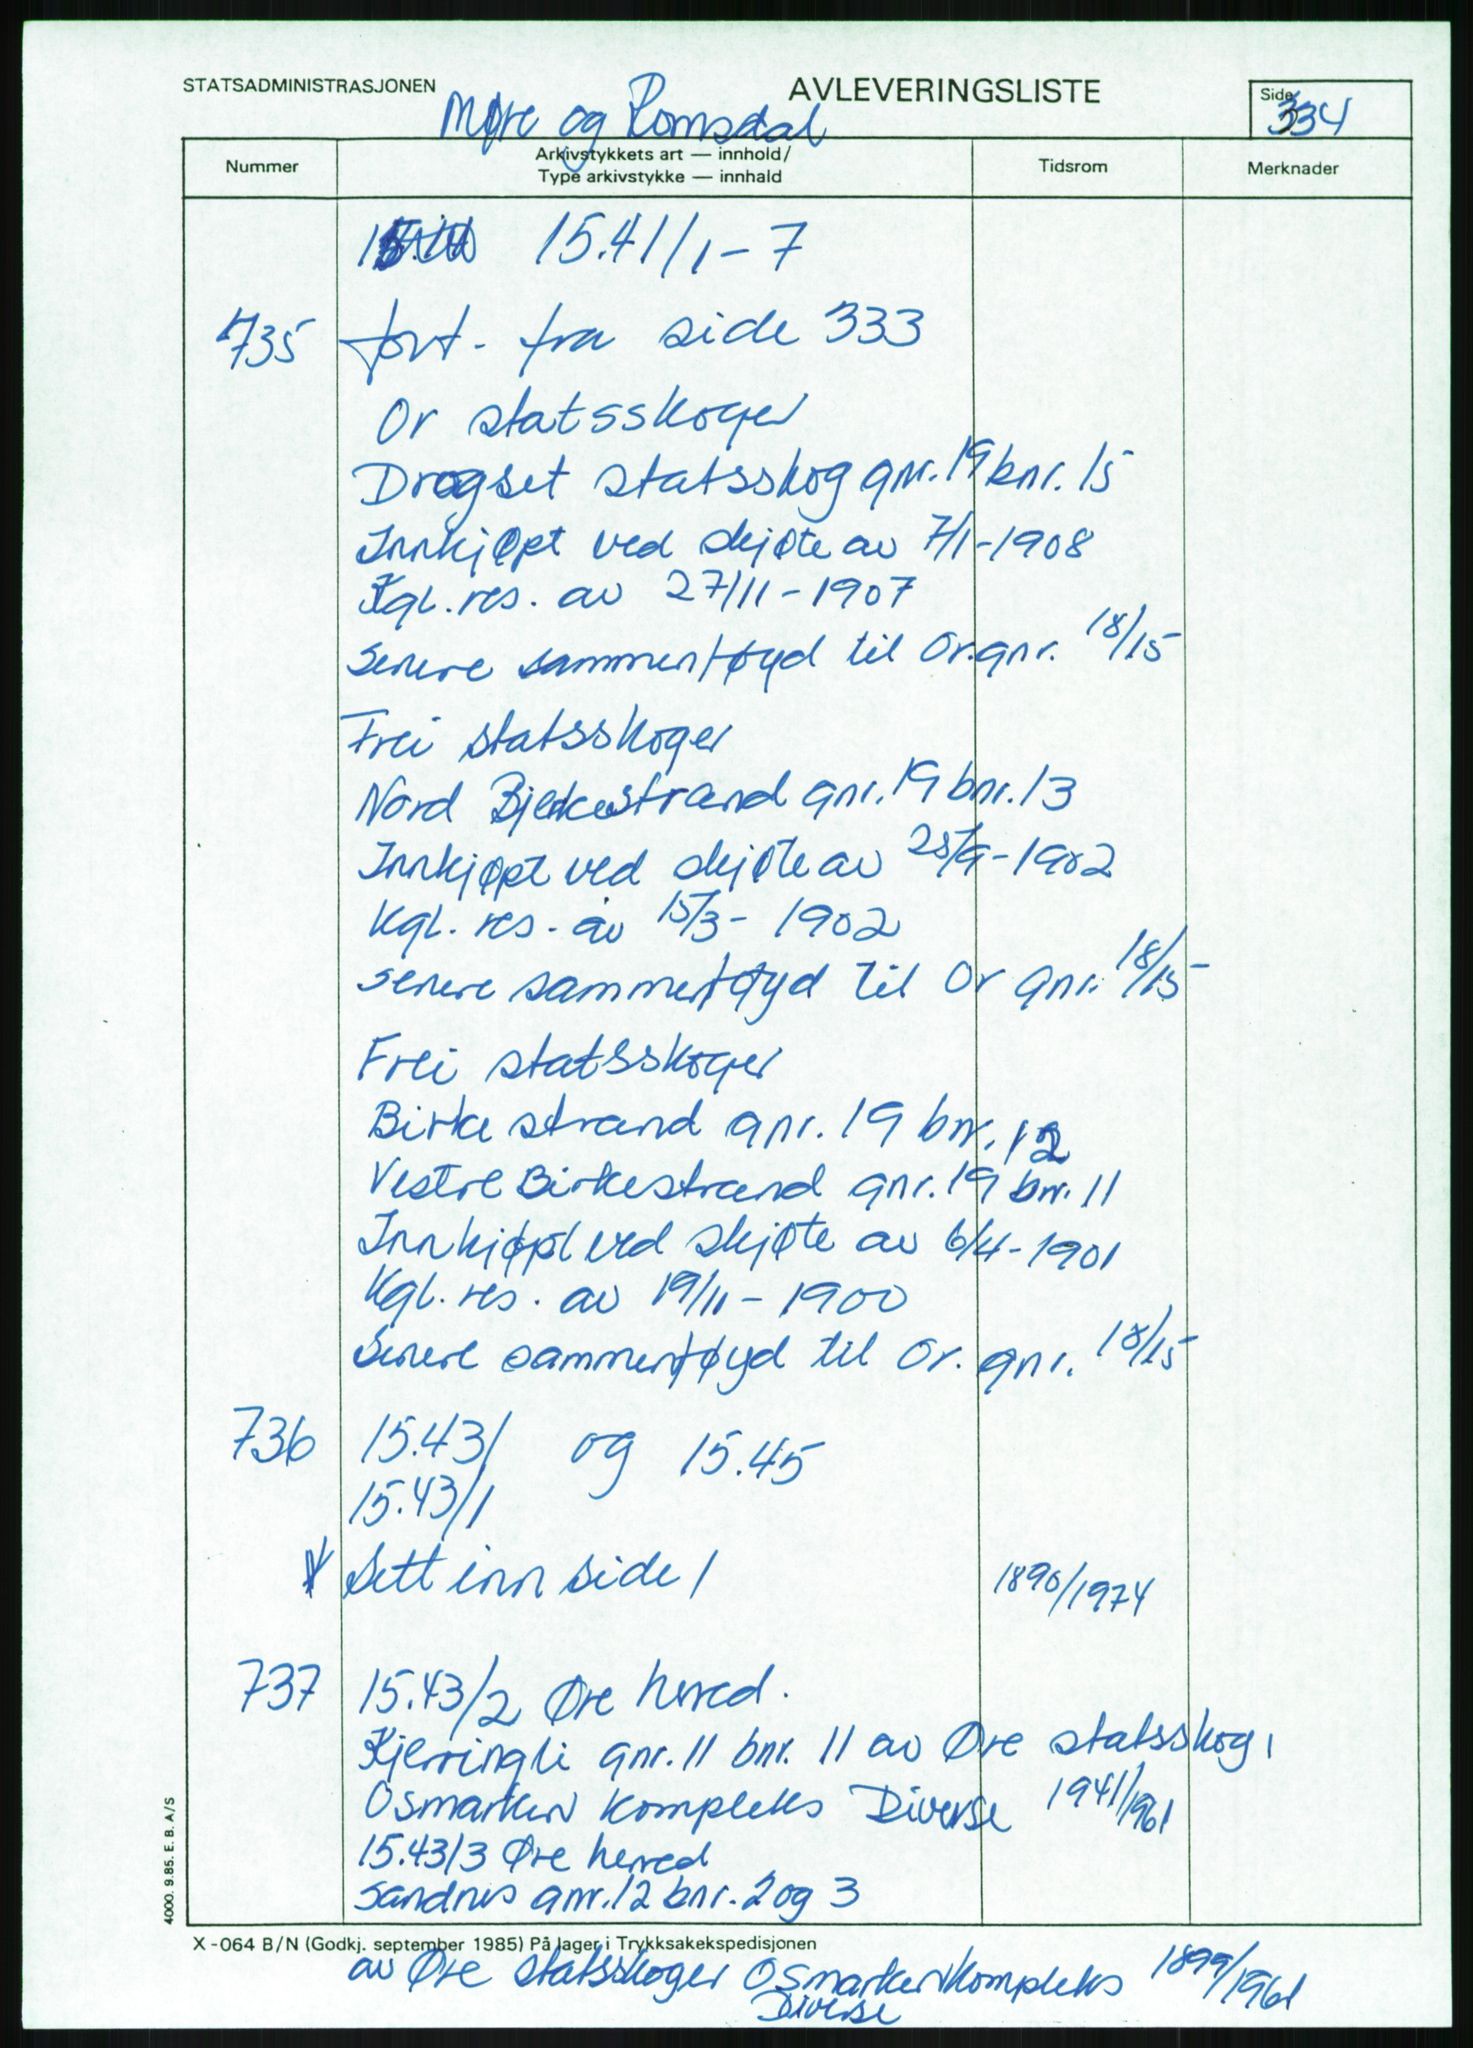 STATSADMINISTRASJONEN
AVLEVERINGSLISTE
Side 334
Møre og Romsdal
Nummer
Arkivstykkets art — innhold/
Type arkivstykke — innhald
Tidsrom
Merknader
15.41/1-7
735 fort. fra side 333
Or statsskoger
Drogset statsskog gnr. 19 bnr. 15
Innkjøpt ved skjøte av 7/1-1908
Kgl. res. av 27/11-1907
Senere sammenføyd til Or. gnr. 18/15
Frei statsskoger
Nord Bjerkestrand gnr. 19 bnr. 13
Innkjøpt ved skjøte av 25/9-1902
Kgl. res. av 15/3-1902
senere sammenføyd til Or gnr. 18/15
Frei statsskoger
Birkestrand gnr. 19 bnr. 12
Vestre Birkestrand gnr. 19 bnr. 11
Innkjøpt ved skjøte av 6/4-1901
Kgl. res. av 19/11-1900
Senere sammenføyd til Or. gnr. 18/15
736 15.43/ og 15.45
15.43/1
Sett inn side 1 1890/1974
737 15.43/2 Øre herred.
Kjerringli gnr. 11 bnr. 11 av Øre statsskog,
Osmarken kompleks Diverse 1941/1961
15.43/3 Øre herred
Sandnes gnr. 12 bnr. 2 og 3
X-064 B/N (Godkj. september 1985) På lager i Trykksakekspedisjonen
av Øre statsskoger Osmarken kompleks 1899/1961
Diverse
4000. 9.85. E. B. A/S